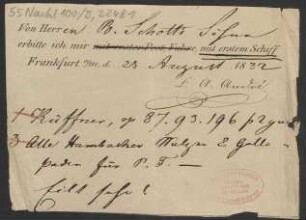 55 Nachl 100/D, 22481
Von Herren B. Schott's Söhne
erbitte ich mir mit erster Post, Fuhre, mit erstem Schiff
Frankfurt a/m. d. 23 August 1832
André
1 Küffner, op 87. 93. 196
3 Alle Hambacher Walzer & Gallo-
paden für P. F. —
Eilt sehr!